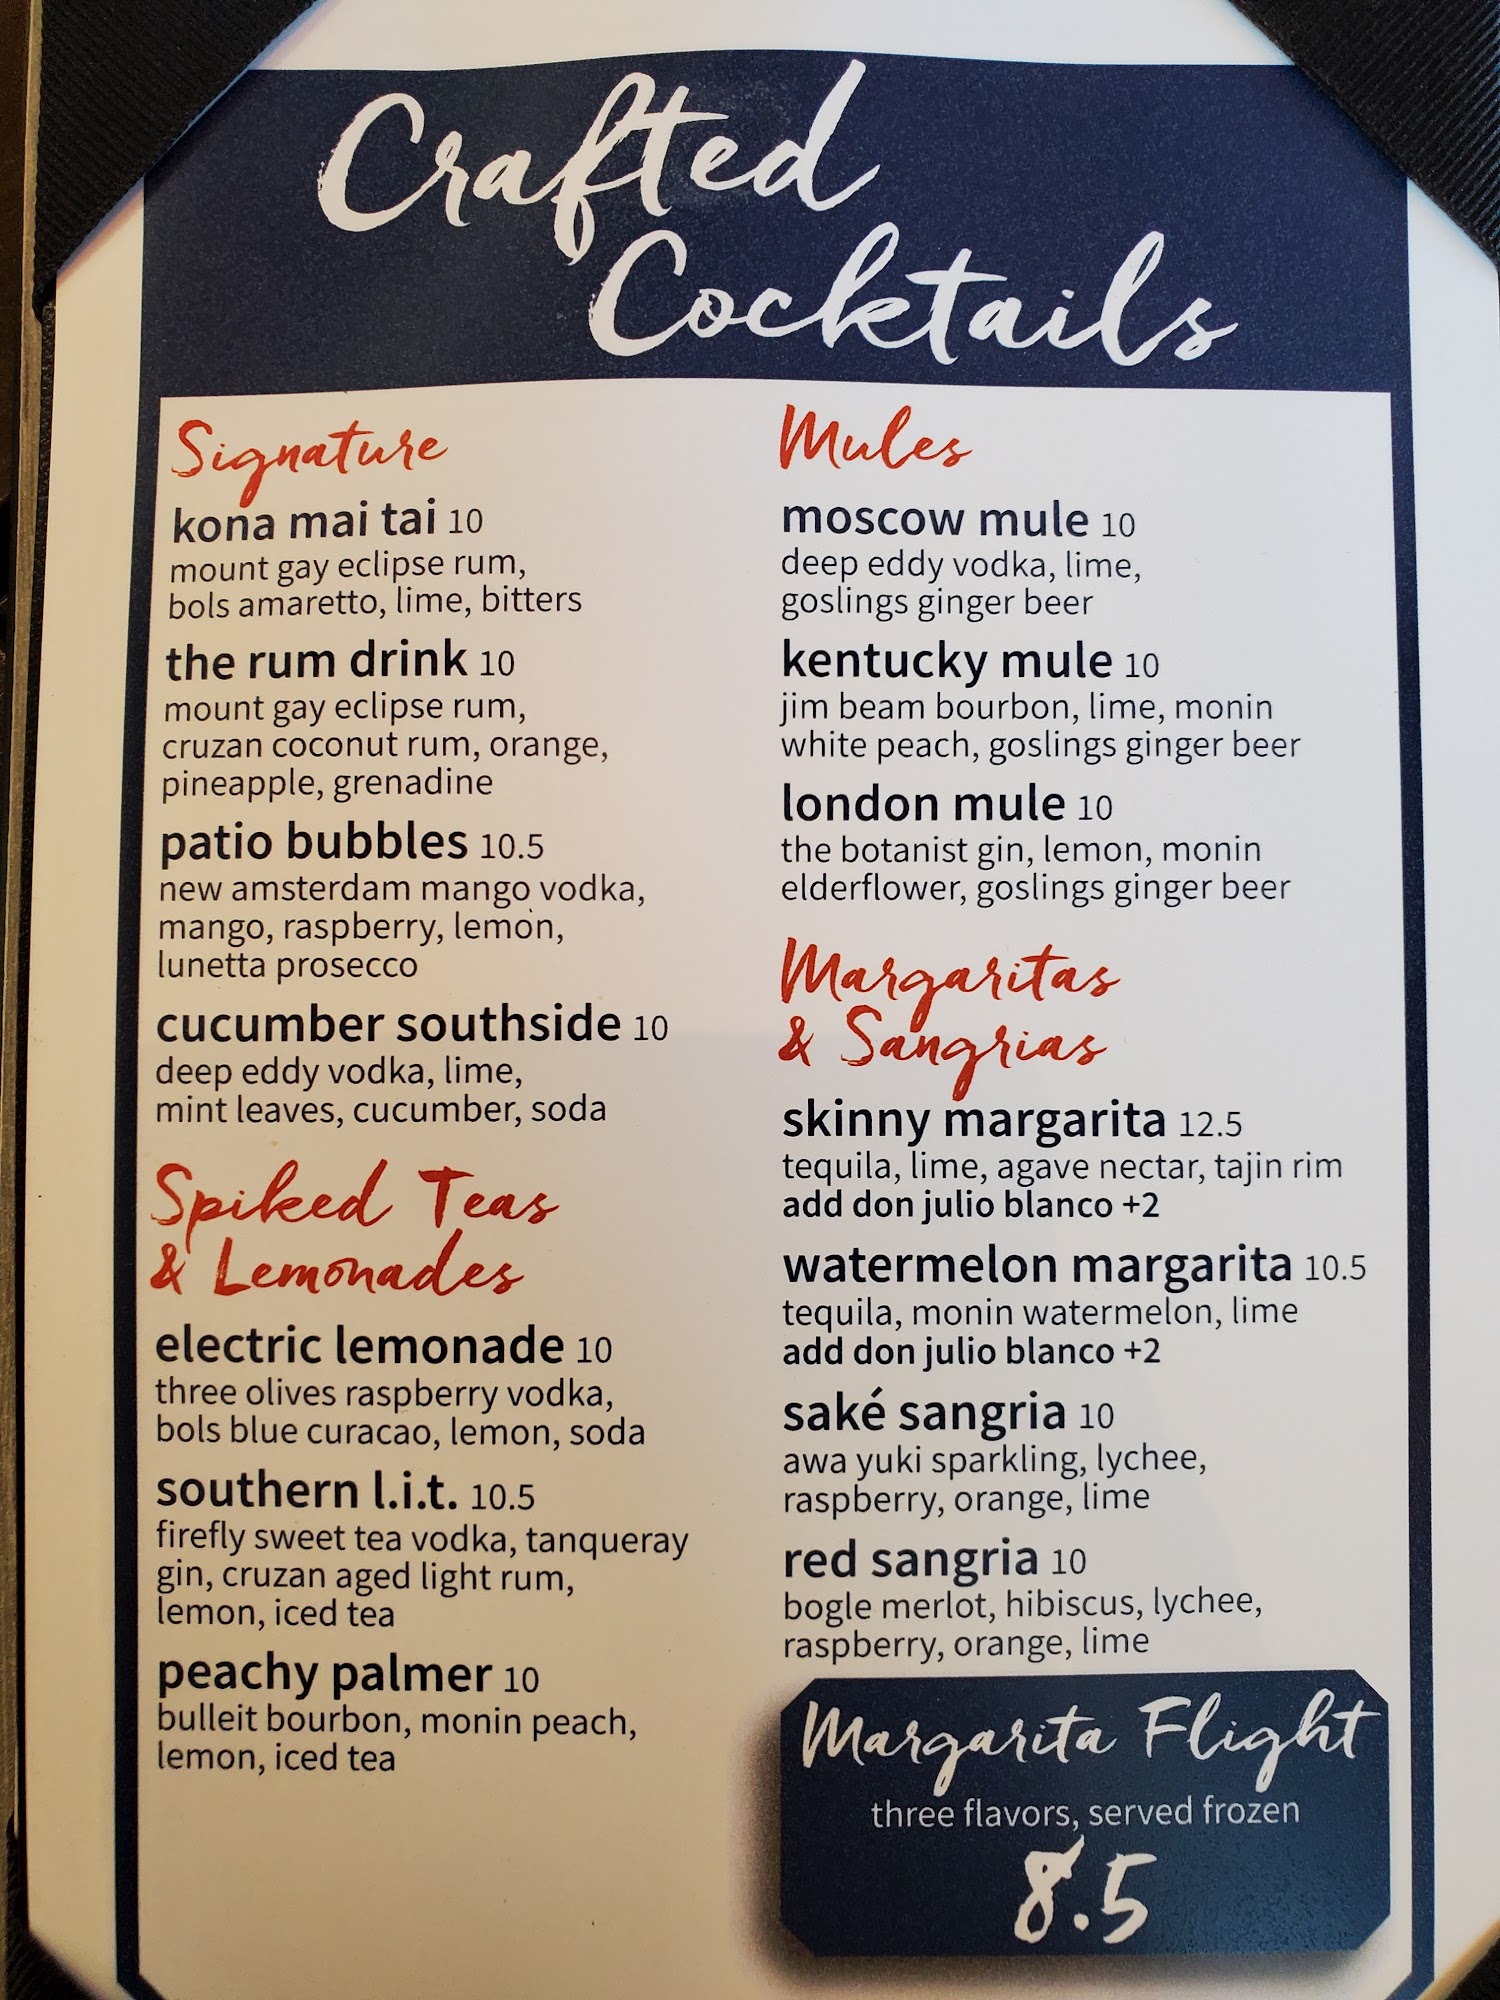 Crafted
Cocktails
Signature
kona mai tai 10
mount gay eclipse rum,
bols amaretto, lime, bitters
the rum drink 10
mount gay eclipse rum,
cruzan coconut rum, orange,
pineapple, grenadine
patio bubbles 10.5
new amsterdam mango vodka,
mango, raspberry, lemon,
lunetta prosecco
cucumber southside 10
deep eddy vodka, lime,
mint leaves, cucumber, soda
Spiked Teas
& Lemonades
electric lemonade 10
three olives raspberry vodka,
bols blue curacao, lemon, soda
southern l.i.t. 10.5
firefly sweet tea vodka, tanqueray
gin, cruzan aged light rum,
lemon, iced tea
peachy palmer 10
bulleit bourbon, monin peach,
lemon, iced tea
Mules
moscow mule 10
deep eddy vodka, lime,
goslings ginger beer
kentucky mule 10
jim beam bourbon, lime, monin
white peach, goslings ginger beer
london mule 10
the botanist gin, lemon, monin
elderflower, goslings ginger beer
Margaritas
& Sangrias
skinny margarita 12.5
tequila, lime, agave nectar, tajin rim
add don julio blanco +2
watermelon margarita 10.5
tequila, monin watermelon, lime
add don julio blanco +2
saké sangria 10
awa yuki sparkling, lychee,
raspberry, orange, lime
red sangria 10
bogle merlot, hibiscus, lychee,
raspberry, orange, lime
Margarita Flight
three flavors, served frozen
8.5